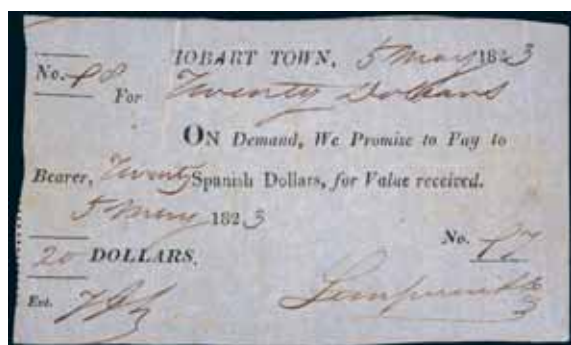 HOBART TOWN, 5 May 1823
No.
For Twenty Dollars
ON Demand, We Promise to Pay to
Bearer, Twenty Spanish Dollars, for Value received.
5 May 1823
No.
20 DOLLARS.
Ent.